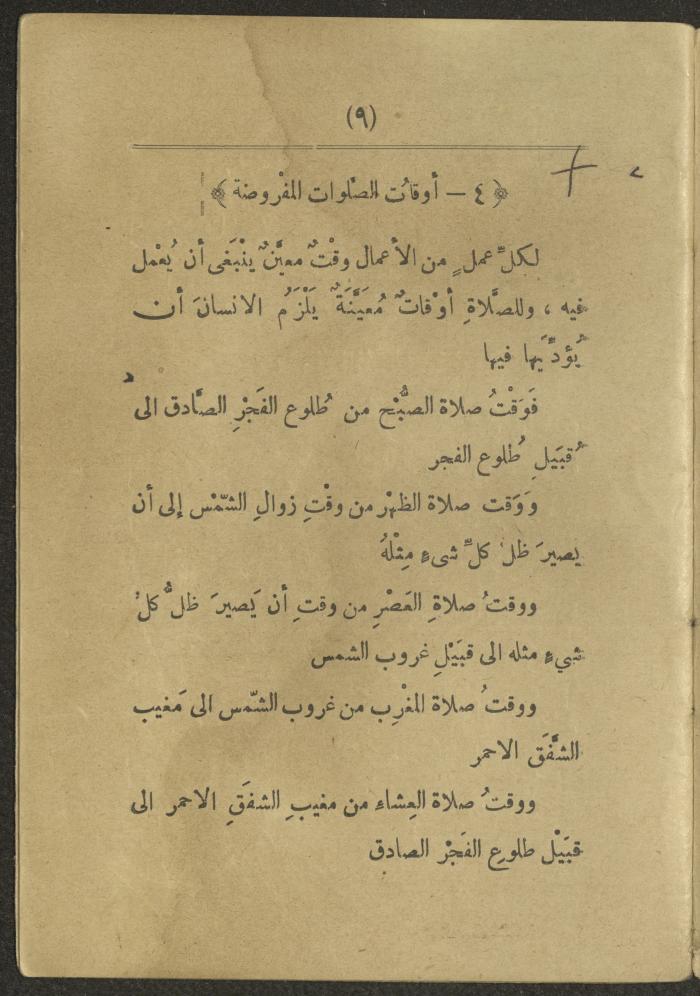 (٩)
﴿ ٤ – أوقاتُ الصَّلوات المفْروضة ﴾
لكلِّ عملٍ من الأعمال وقْتٌ معيَّنٌ ينْبَغى أن يُعْمل
فيه ، وللصَّلاةِ أوْقاتٌ مُعَيَّنَةٌ يَلْزَمُ الانسانَ أن
يُؤدِّيَها فيها
فَوَقْتُ صلاة الصُّبْح من طُلوع الفَجْرِ الصَّادق الى
قُبَيَلِ طُلوع الفجر
وَوَقت صلاة الظهْر من وقْتِ زوالِ الشّمْس إلى أن
يصيرَ ظلُ كلِّ شىءٍ مِثْلهُ
ووقتُ صلاةِ العَصْرِ من وقتِ أن يَصيرَ ظلُّ كلِ
شيءٍ مثله الى قبَيْلِ غروب الشمس
ووقتُ صلاة المغْرِب من غروب الشّمس الى مَغيب
الشَّفَق الاحمر
ووقتُ صلاة العِشاءِ من مغيبِ الشفَقِ الاحمر الى
قبَيْل طلوع الفَجْر الصادق